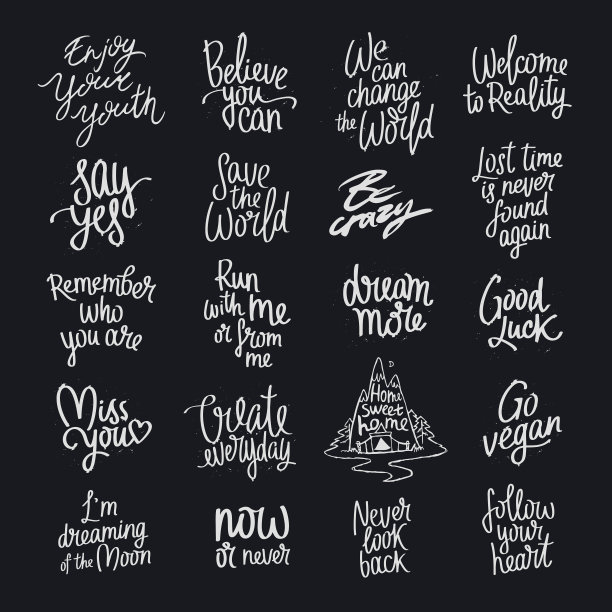 Enjoy
Your
youth
Believe
you
can
We
can
change
the World
Welcome
to Reality
say
yes
Save
the
World
Be
crazy
Lost time
is never
found
again
Remember
who
you are
Run
with me
or from
me
dream
more
Good
Luck
Miss
You
Create
everyday
Home
Sweet
home
Go
vegan
I'm
dreaming
of the Moon
now
or never
Never
look
back
follow
your
heart